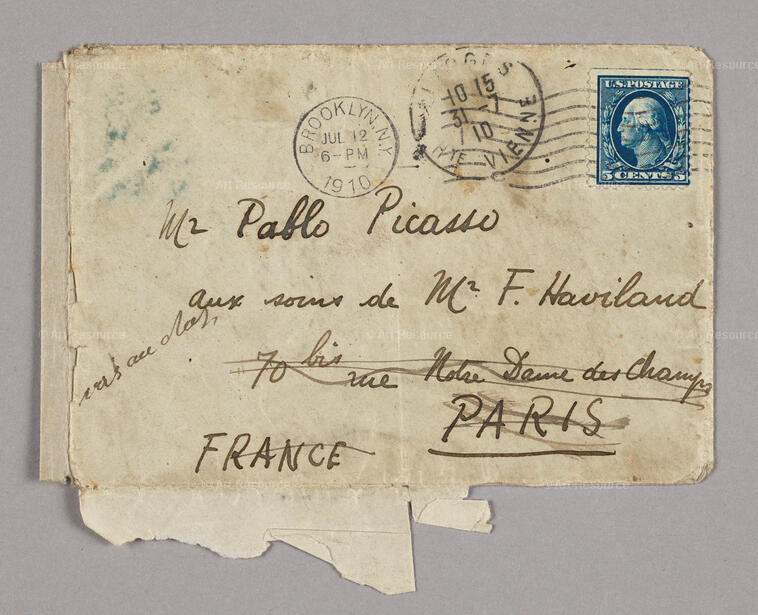 BROOKLYN, N.Y.
JUL 12
6-PM
1910
10 15
31 -7
10
VIENNE
U.S. POSTAGE
5 CENTS 5
Mr Pablo Picasso
aux soins de Mr F. Haviland
70 bis rue Notre Dame des Champs
PARIS
FRANCE
© Art Resource